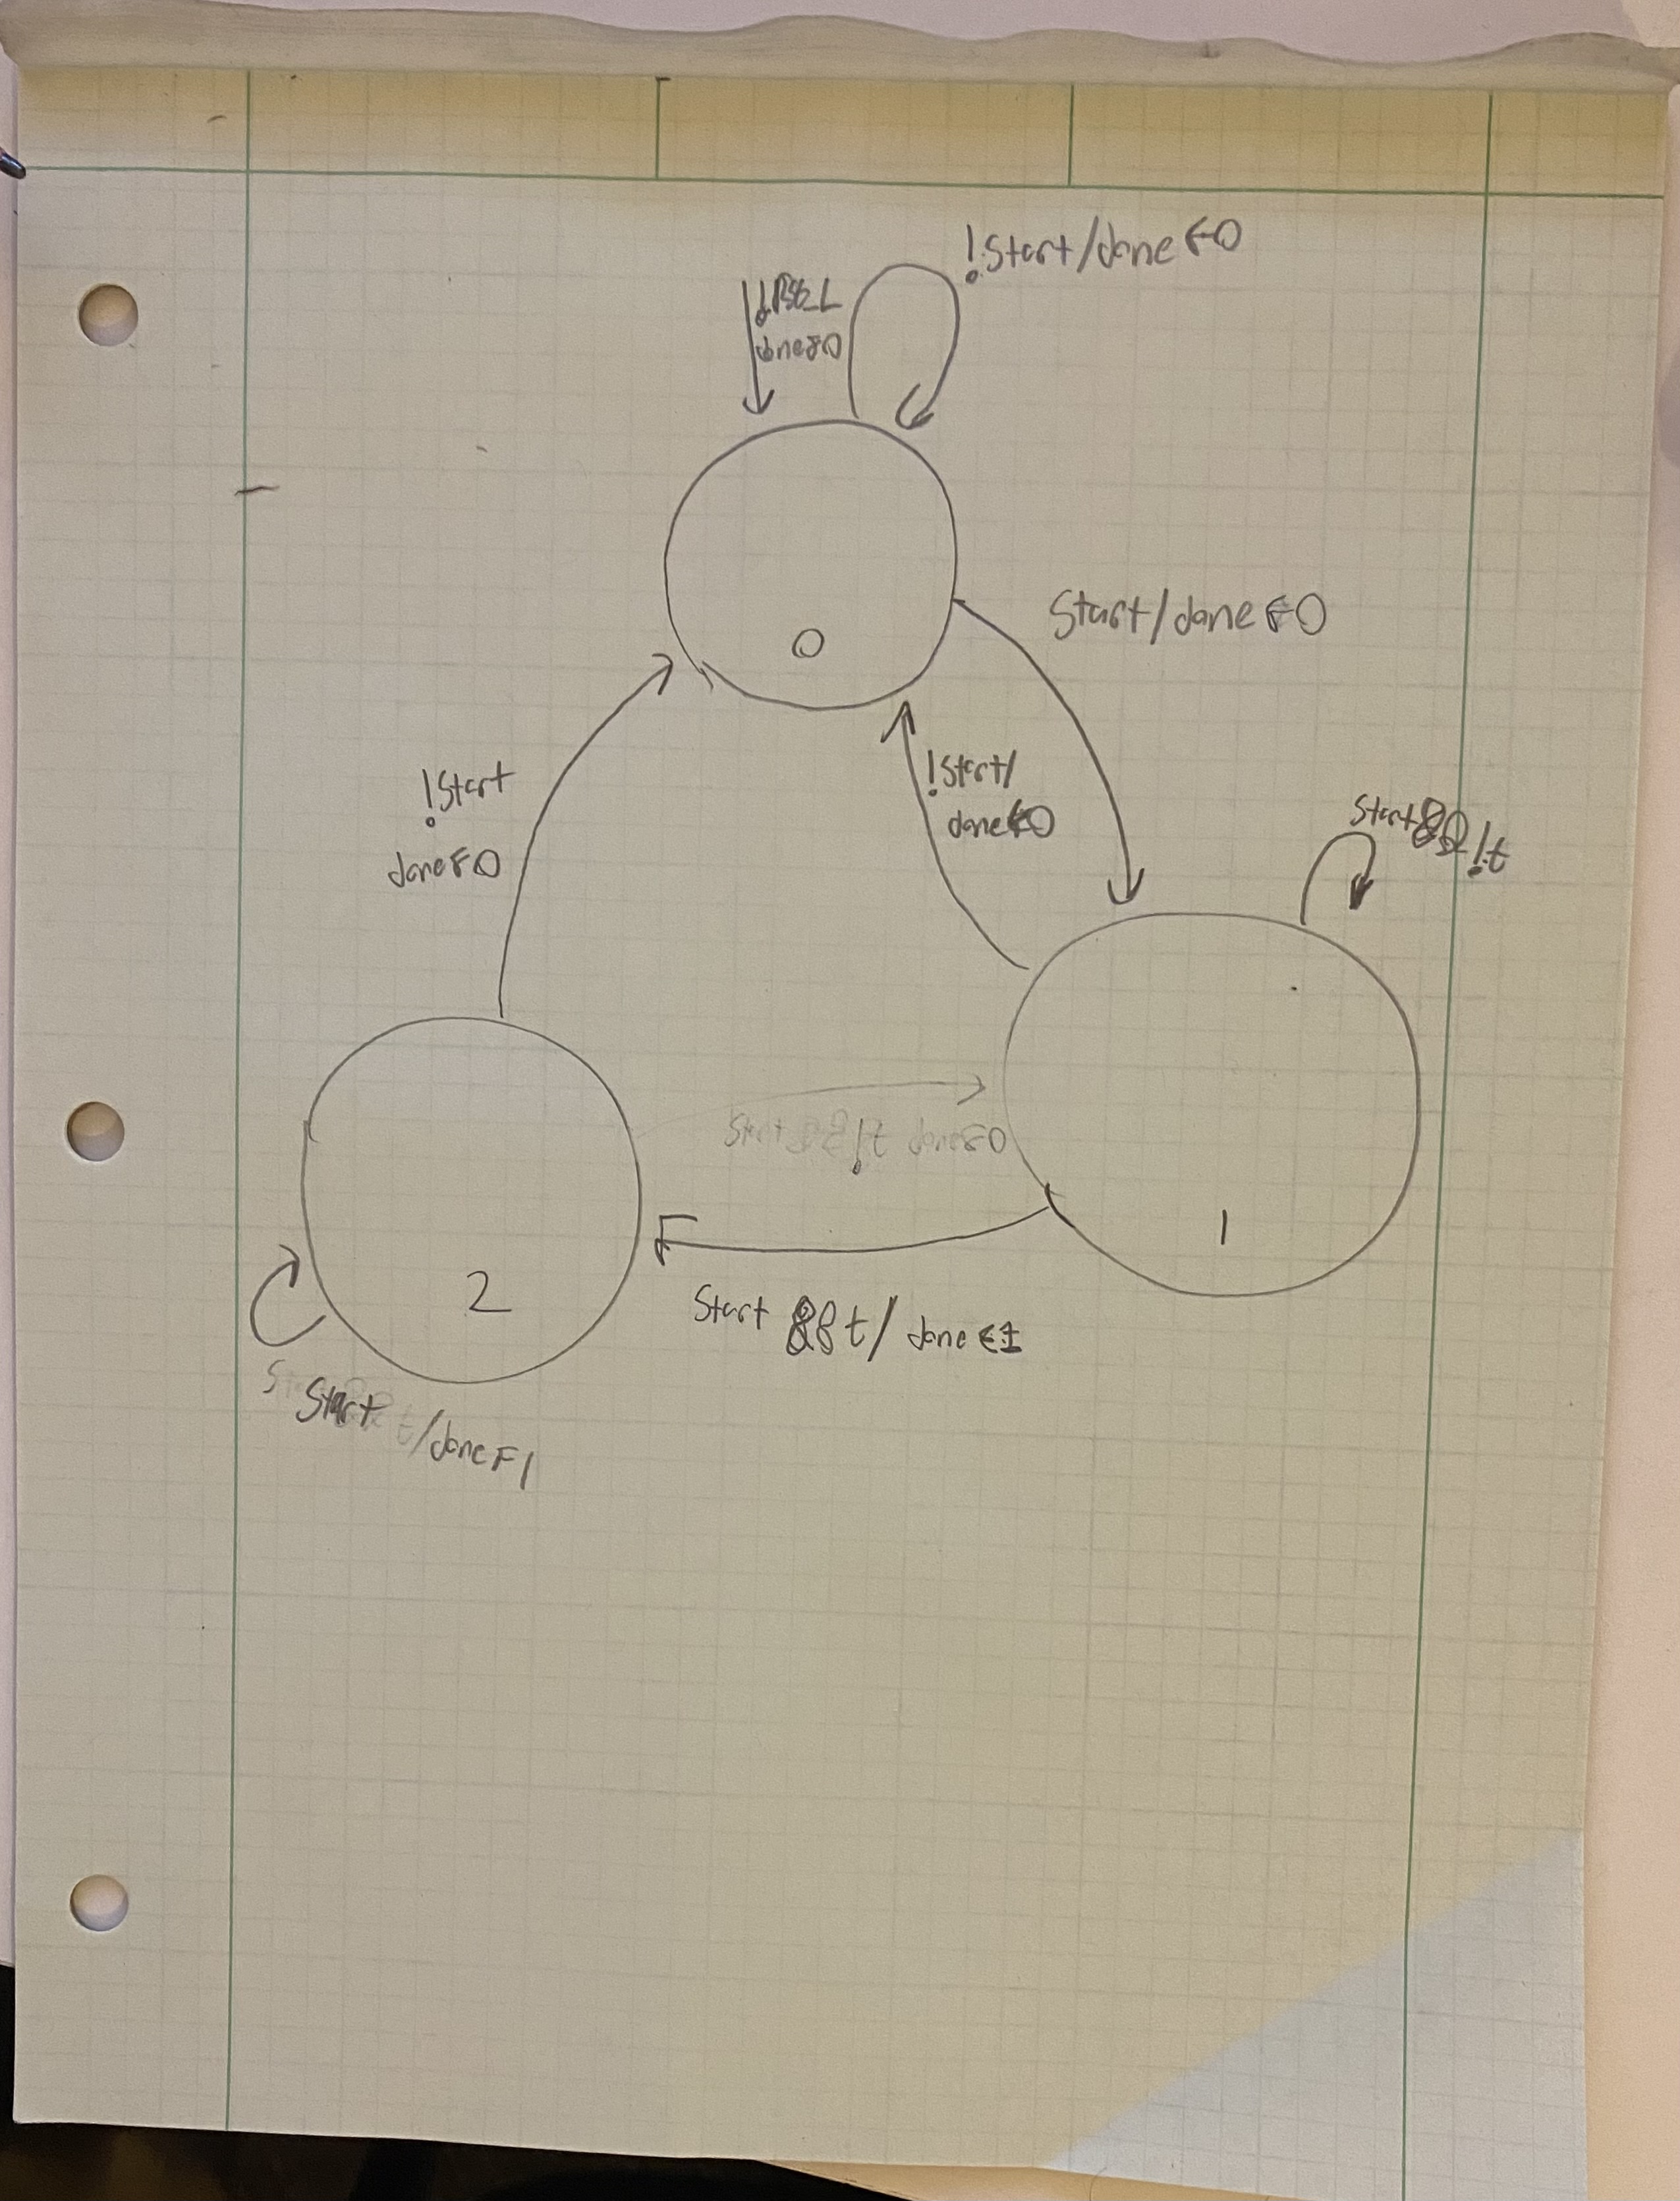 !Start/done←0
!Rst_L
done←0
Start/done←0
0
!Start/
done←0
!Start
done←0
Start&&!t
Start &&!t done←0
1
2
Start &&t/done←1
Start t/done←1